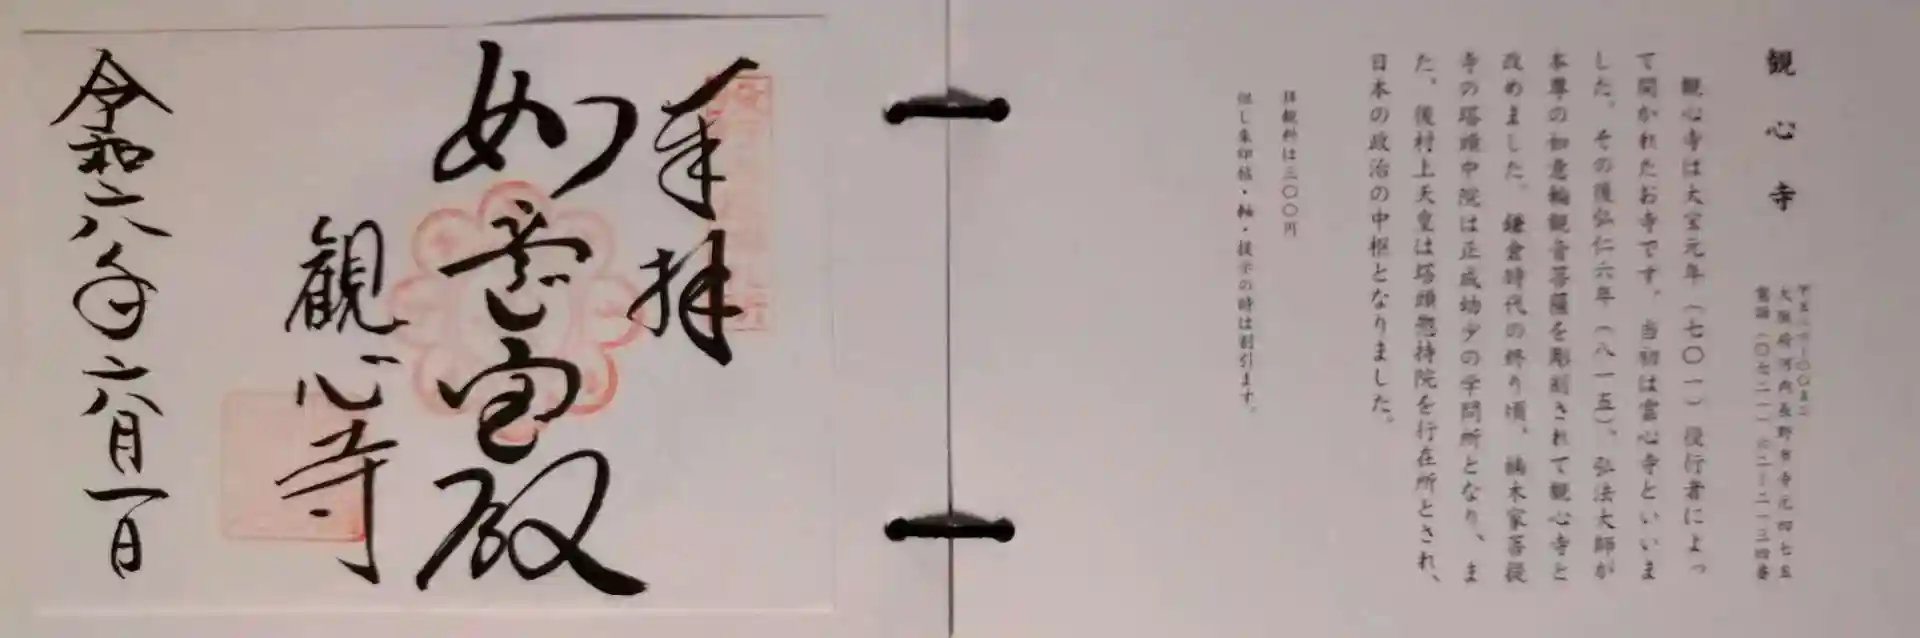 観心寺
〒五八六-〇〇五三
大阪府河内長野市寺元四七五
電話(〇七二一)六二-二一三四番
観心寺は大宝元年(七〇一)役行者によっ
て開かれたお寺です。当初は雲心寺といいま
した。その後弘仁六年(八一五)、弘法大師が
本尊の如意輪観音菩薩を彫刻されて観心寺と
改めました。鎌倉時代の終り頃、楠木家菩提
寺の塔頭中院は正成幼少の学問所となり、ま
た、後村上天皇は塔頭惣持院を行在所とされ、
日本の政治の中枢となりました。
拝観料は三〇〇円
但し朱印帖・軸・提示の時は割引ます。
奉拝
如意宝殿
観心寺
令和六年六月一日